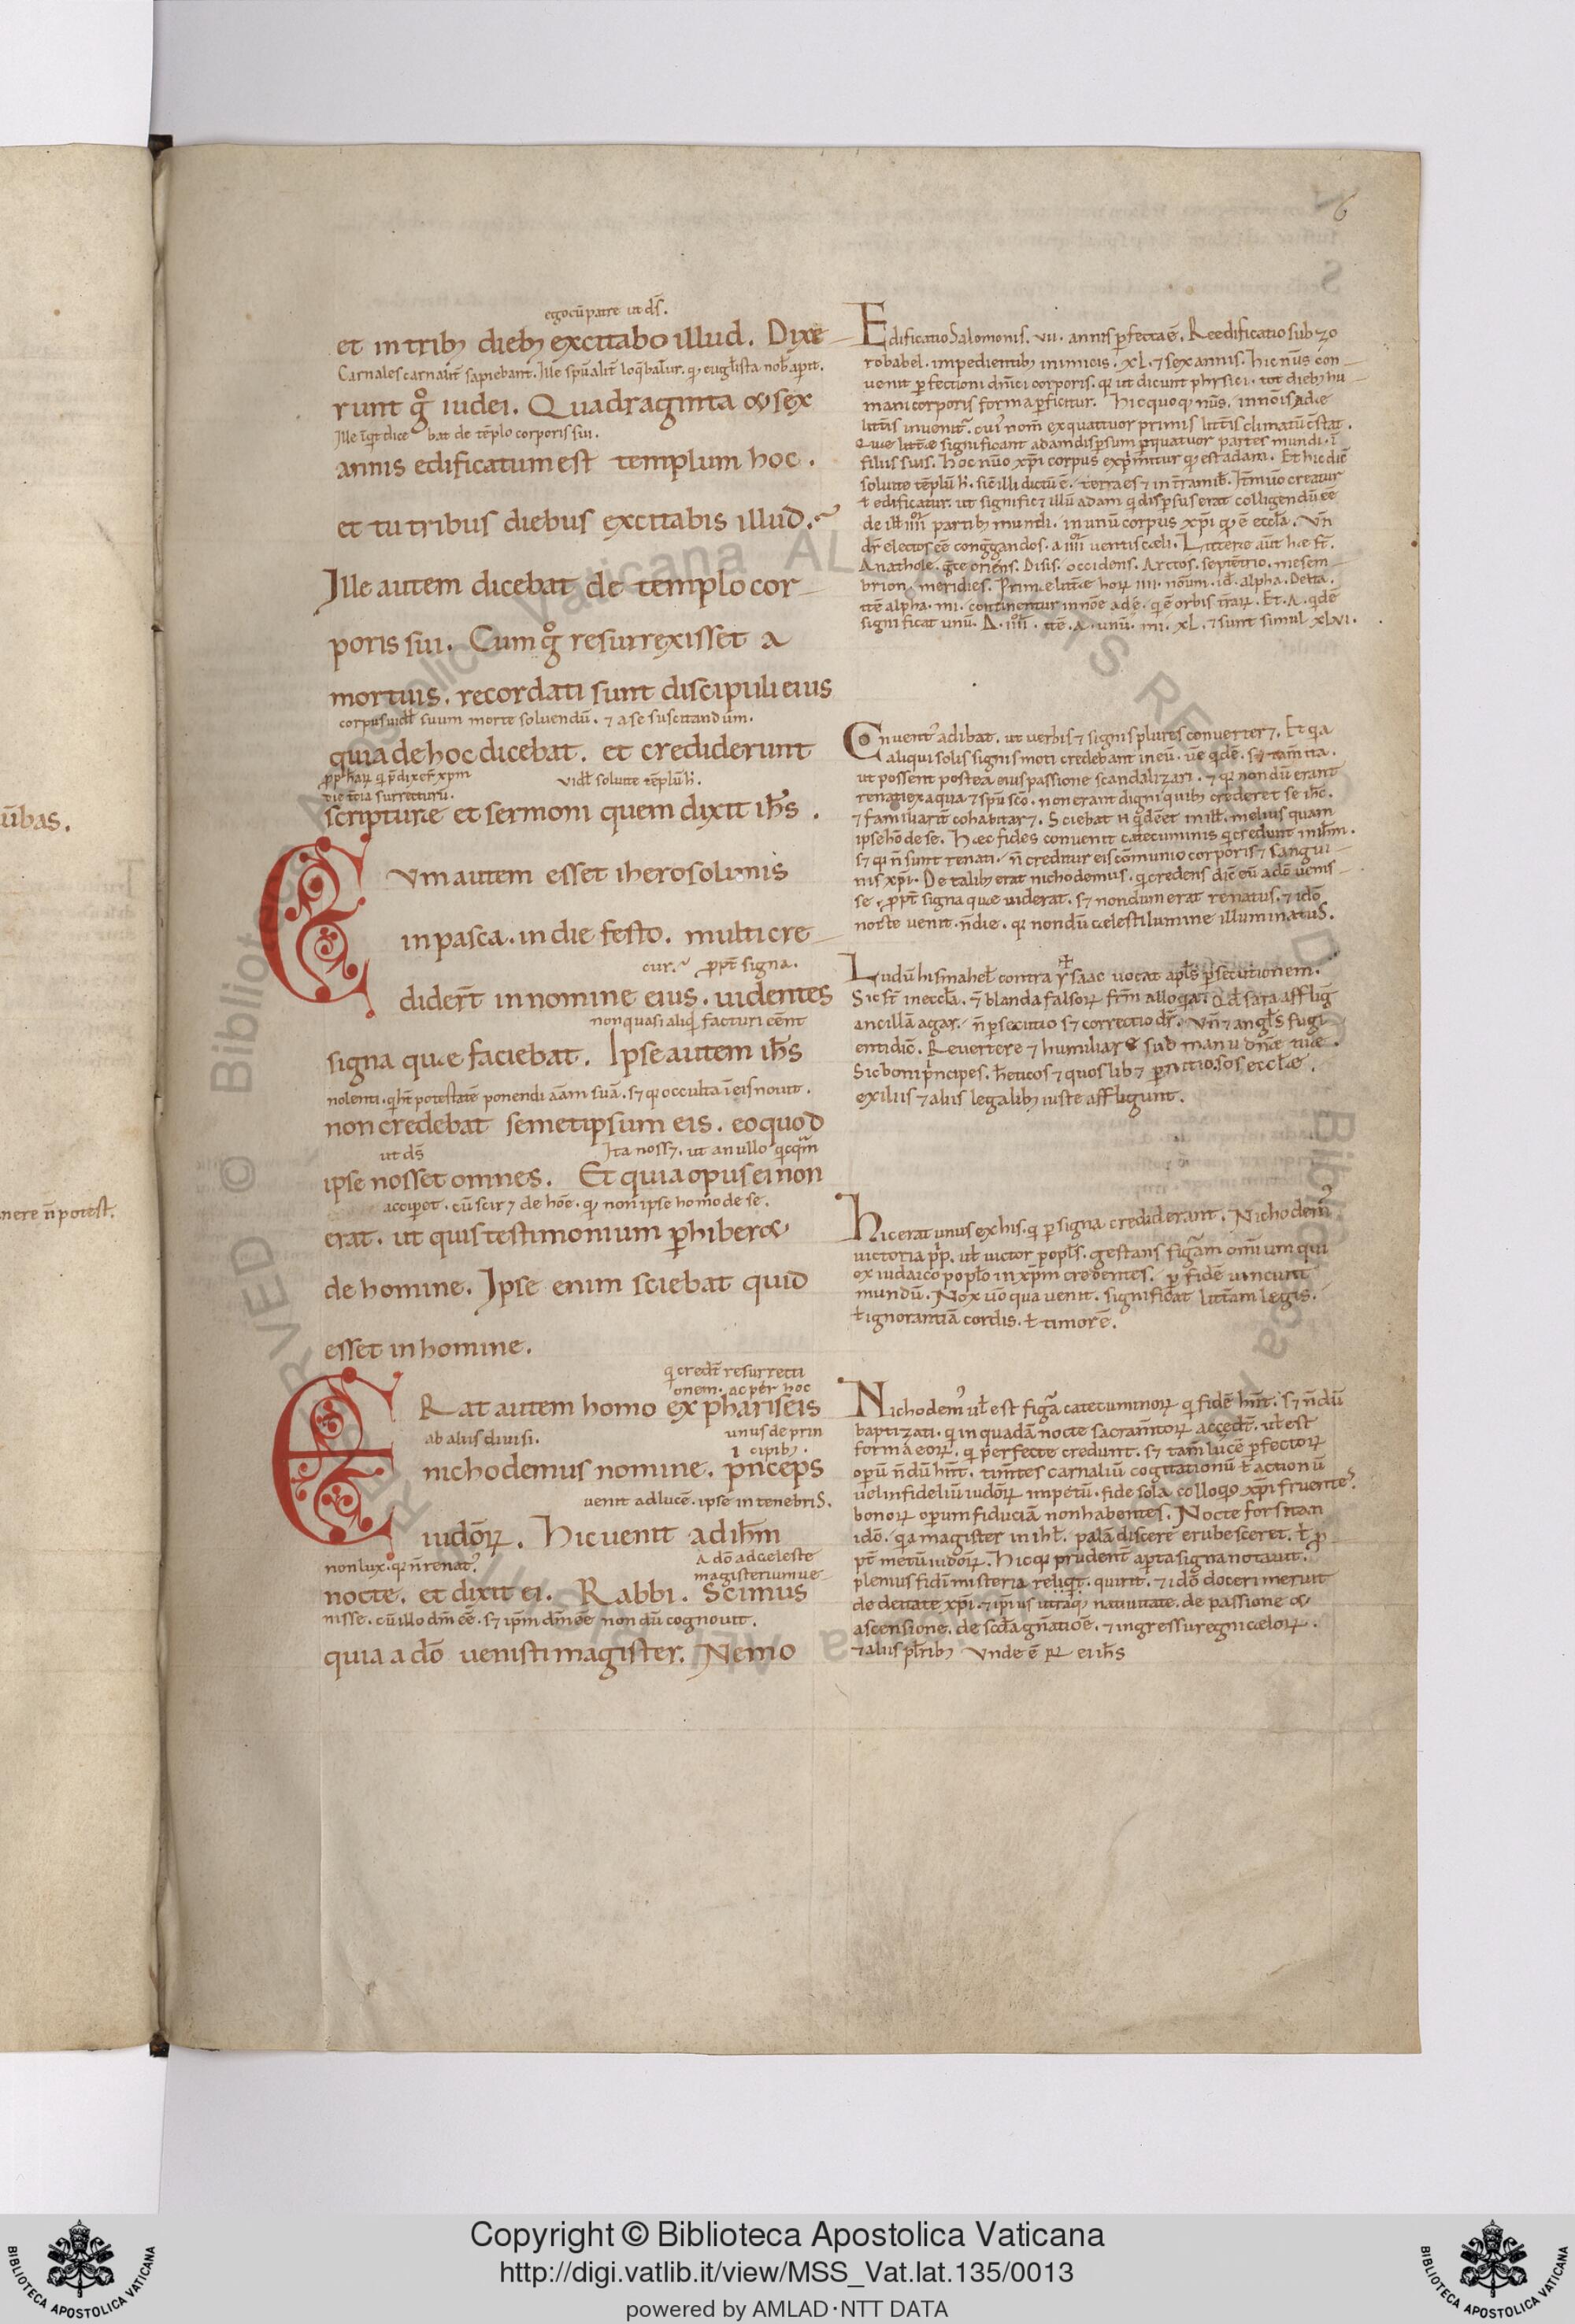 6
ūbas.
nere n̄ potest.
ego cū patre ut d̄s.
et in trib; dieb; excitabo illud. Dixe
Carnales carnalit̄ sapiebant. Ille sp̄ualit̄ loq̄bat̄ur. q; eug̅lista nob̄ ap̄it.
runt g̊ iudei. Quadraginta & sex
Ille īq̄t dice bat de tēplo corporis sui.
annis edificatum est templum hoc.
et tu tribus diebus excitabis illud.
Ille autem dicebat de templo cor
poris sui. Cum g̊ resurrexisset a
mortuis. recordati sunt discipuli eius
corpus uidel̄ suum morte soluendū. ⁊ a se suscitandum.
quia de hoc dicebat. et crediderunt
uidel̄ soluite tēplū h̄.
scripturæ et sermoni quem dixit ih̄s.
Cum autem esset iherosolimis
in pasca. in die festo. multi cre
cur. ꝓpt̄ signa.
dider̄t in nomine eius. uidentes
non quasi aliq̄ facturi eēnt
signa quæ faciebat. Ipse autem ih̄s
nolenti. q̄ ht̄ potestatē ponendi aām suā. s; q; occulta ī eis nouit.
non credebat semetipsum eis. eo quod
ut d̄s Ita noss;. ut a nullo q̄cq̄m
ipse nosset omnes. Et quia opus ei non
accip̄et. cū scir⁊ de hōe. q; non ipse homo de se.
erat. ut quis testimonium ꝑhiber&
de homine. Ipse enim sciebat quid
esset in homine.
q̄ credt̄ resurrecti
onem. ac per hoc
ERat autem homo ex phariseis
ab aliis diuisi. unus de prin
cipib;.
nichodemus nomine. pnceps
uenit ad lucē. ipse in tenebris.
iudōꝝ. Hic uenit ad ih̄m
non lux. q; n̄ renat᾽. A dō ad celeste
magisterium ue
nocte. et dixit ei. Rabbi. Scimus
nisse. cū illo dm̄ eē. s; ip̄m dm̄ eē non dū cognouit.
quia a dō uenisti magister. Nemo
Edificatio Salomonis. VII. annis ꝑfecta ē. Reedificatio sub zo
robabel. impedientib; inimicis. XL. ⁊ sex annis. Hic nūs con
uenit ꝑfectioni dn̄ici corporis. q; ut dicunt phisici. tot dieb; hu
mani corporis forma ꝑficitur. Hic quoq; nūs. in nōis adæ
litt̄is inuenit᾽. cui᾽ nom̄ ex quattuor primis litt̄is climatū cstat.
Quæ litt̄æ significant adam disꝑsum ꝑ quatuor partes mundi. ī
filiis suis. Hoc nūo xp̄i corpus exp̄mitur q; est adam. Et hic diē
soluite tēplū h̄. sic̄ illi dictū ē. terra es ⁊ in t̄ram ib̄. It̄m ūo creatur
ł edificatur. ut signific⁊ illū adam q̄ disꝑsus erat colligendū eē
de ill̄ IIII partib; mundi. in unū corpus xp̄i q; ē eccl̄a. Vn̄
dr̄ electos eē cong̅gandos. a IIII uentis cæli. Litteræ aūt hæ st̄.
Anathole. g̅te oriens. Disis. occidens. Arctos. septētrio. mesem
brion. meridies. Primæ litt̄æ hoꝝ IIII. noīum. id̄. alpha. Delta.
itē alpha. mi. continentur in nōe adę. q̄ ē orbis t̄raꝝ. Et. A. q̄dē
significat unū. Δ. IIII. itē. A. unū. mi. XL. ⁊ sunt simul XLVI.
Conuent᾽ adibat. ut uerbis ⁊ signis plures conuerter⁊. Et q̄a
aliqui solis signis moti credebant in eū. ūe q̄dē. s; tam̄ ita.
ut possent postea eius passione scandalizari. ⁊ q; non dū erant
renati ex aqua ⁊ sp̄u sc̄o. non erant digni quib; crederet se ih̄c.
⁊ familiarit̄ cohabitar⁊. Sciebat n̄ q̄d eēt in ill̄. melius quam
ipse hō de se. Hæc fides conuenit catecuminis q̄ credunt in ih̄m.
s; q; n̄ sunt renati. n̄ creditur eis cōmunio corporis ⁊ sangui
nis xp̄i. De talib; erat nichodemus. q̄ credens diē eū a dō uenis
se. ꝓpt̄ signa quæ uiderat. s; nondum erat renatus. ⁊ idō
nocte uenit. n̄ die. q; non dū cælesti lumine illuminatus.
Ludū hismahel̄ contra ysaac uocat apl̄s ꝑsecutionem.
Sic st̄ in eccl̄a. ⁊ blanda falsoꝝ frm̄ alloq̄a. Qd̄ sara afflig̅
ancillā agar. n̄ ꝑsecutio s; correctio dr̄. Vn̄ ⁊ angl̄s fugi
enti diē. Reuertere ⁊ humiliare sub manu dn̄æ tuæ.
Sic boni p̄ncipes. h̄eticos ⁊ quoslib⁊ ꝑnitiosos eccl̄æ.
exiliis ⁊ aliis legalib; iuste affligunt.
Hic erat unus ex his. q̄ ꝑ signa crediderant. Nichodem᾽
uictoria pp̄. ul̄ uictor popl̄s. gestans figuram om̄ium qui
ex iudaico popl̄o in xp̄m credentes. ꝑ fidē uincunt
mundū. Nox ūo qua uenit. significat litt̄am legis.
ł ignorantiā cordis. ł timorē.
Nichodem᾽ ul̄ est fig̅a catecuminoꝝ q̄ fidē hn̄t. s; n̄ dū
baptizati. q̄ in quadā nocte sacram̄toꝝ accedt̄. ul̄ est
forma eoꝝ. q̄ ꝑfecte credunt. s; tam̄ lucē ꝑfectoꝝ
operū n̄ dū hn̄t. tim̄tes carnaliū cogitationū ł actionū
uel infideliū iudoꝝ impetū. fide sola colloq̄o xp̄i fruente᾽.
bonoꝝ operum fiduciā non habentes. Nocte forsitan
idō. q̄a magister in ihl̄. palā discere erubesceret. ł ꝓ
pt̄ metū iudoꝝ. Hic q; prudent̄ aꝑta signa notauit.
plenius fidei misteria reliq̄. quirit. ⁊ idō doceri meruit
de deitate xp̄i. ⁊ ip̄ius utraq; natiuitate. de passione &
ascensione. de scd̄a gn̄atiōe. ⁊ ingressu regni cæloꝝ.
⁊ aliis pl̄rib; Vnde ē R ei ih̄s
Copyright © Biblioteca Apostolica Vaticana
http://digi.vatlib.it/view/MSS_Vat.lat.135/0013
powered by AMLAD·NTT DATA
BIBLIOTECA APOSTOLICA VATICANA
BIBLIOTECA APOSTOLICA VATICANA